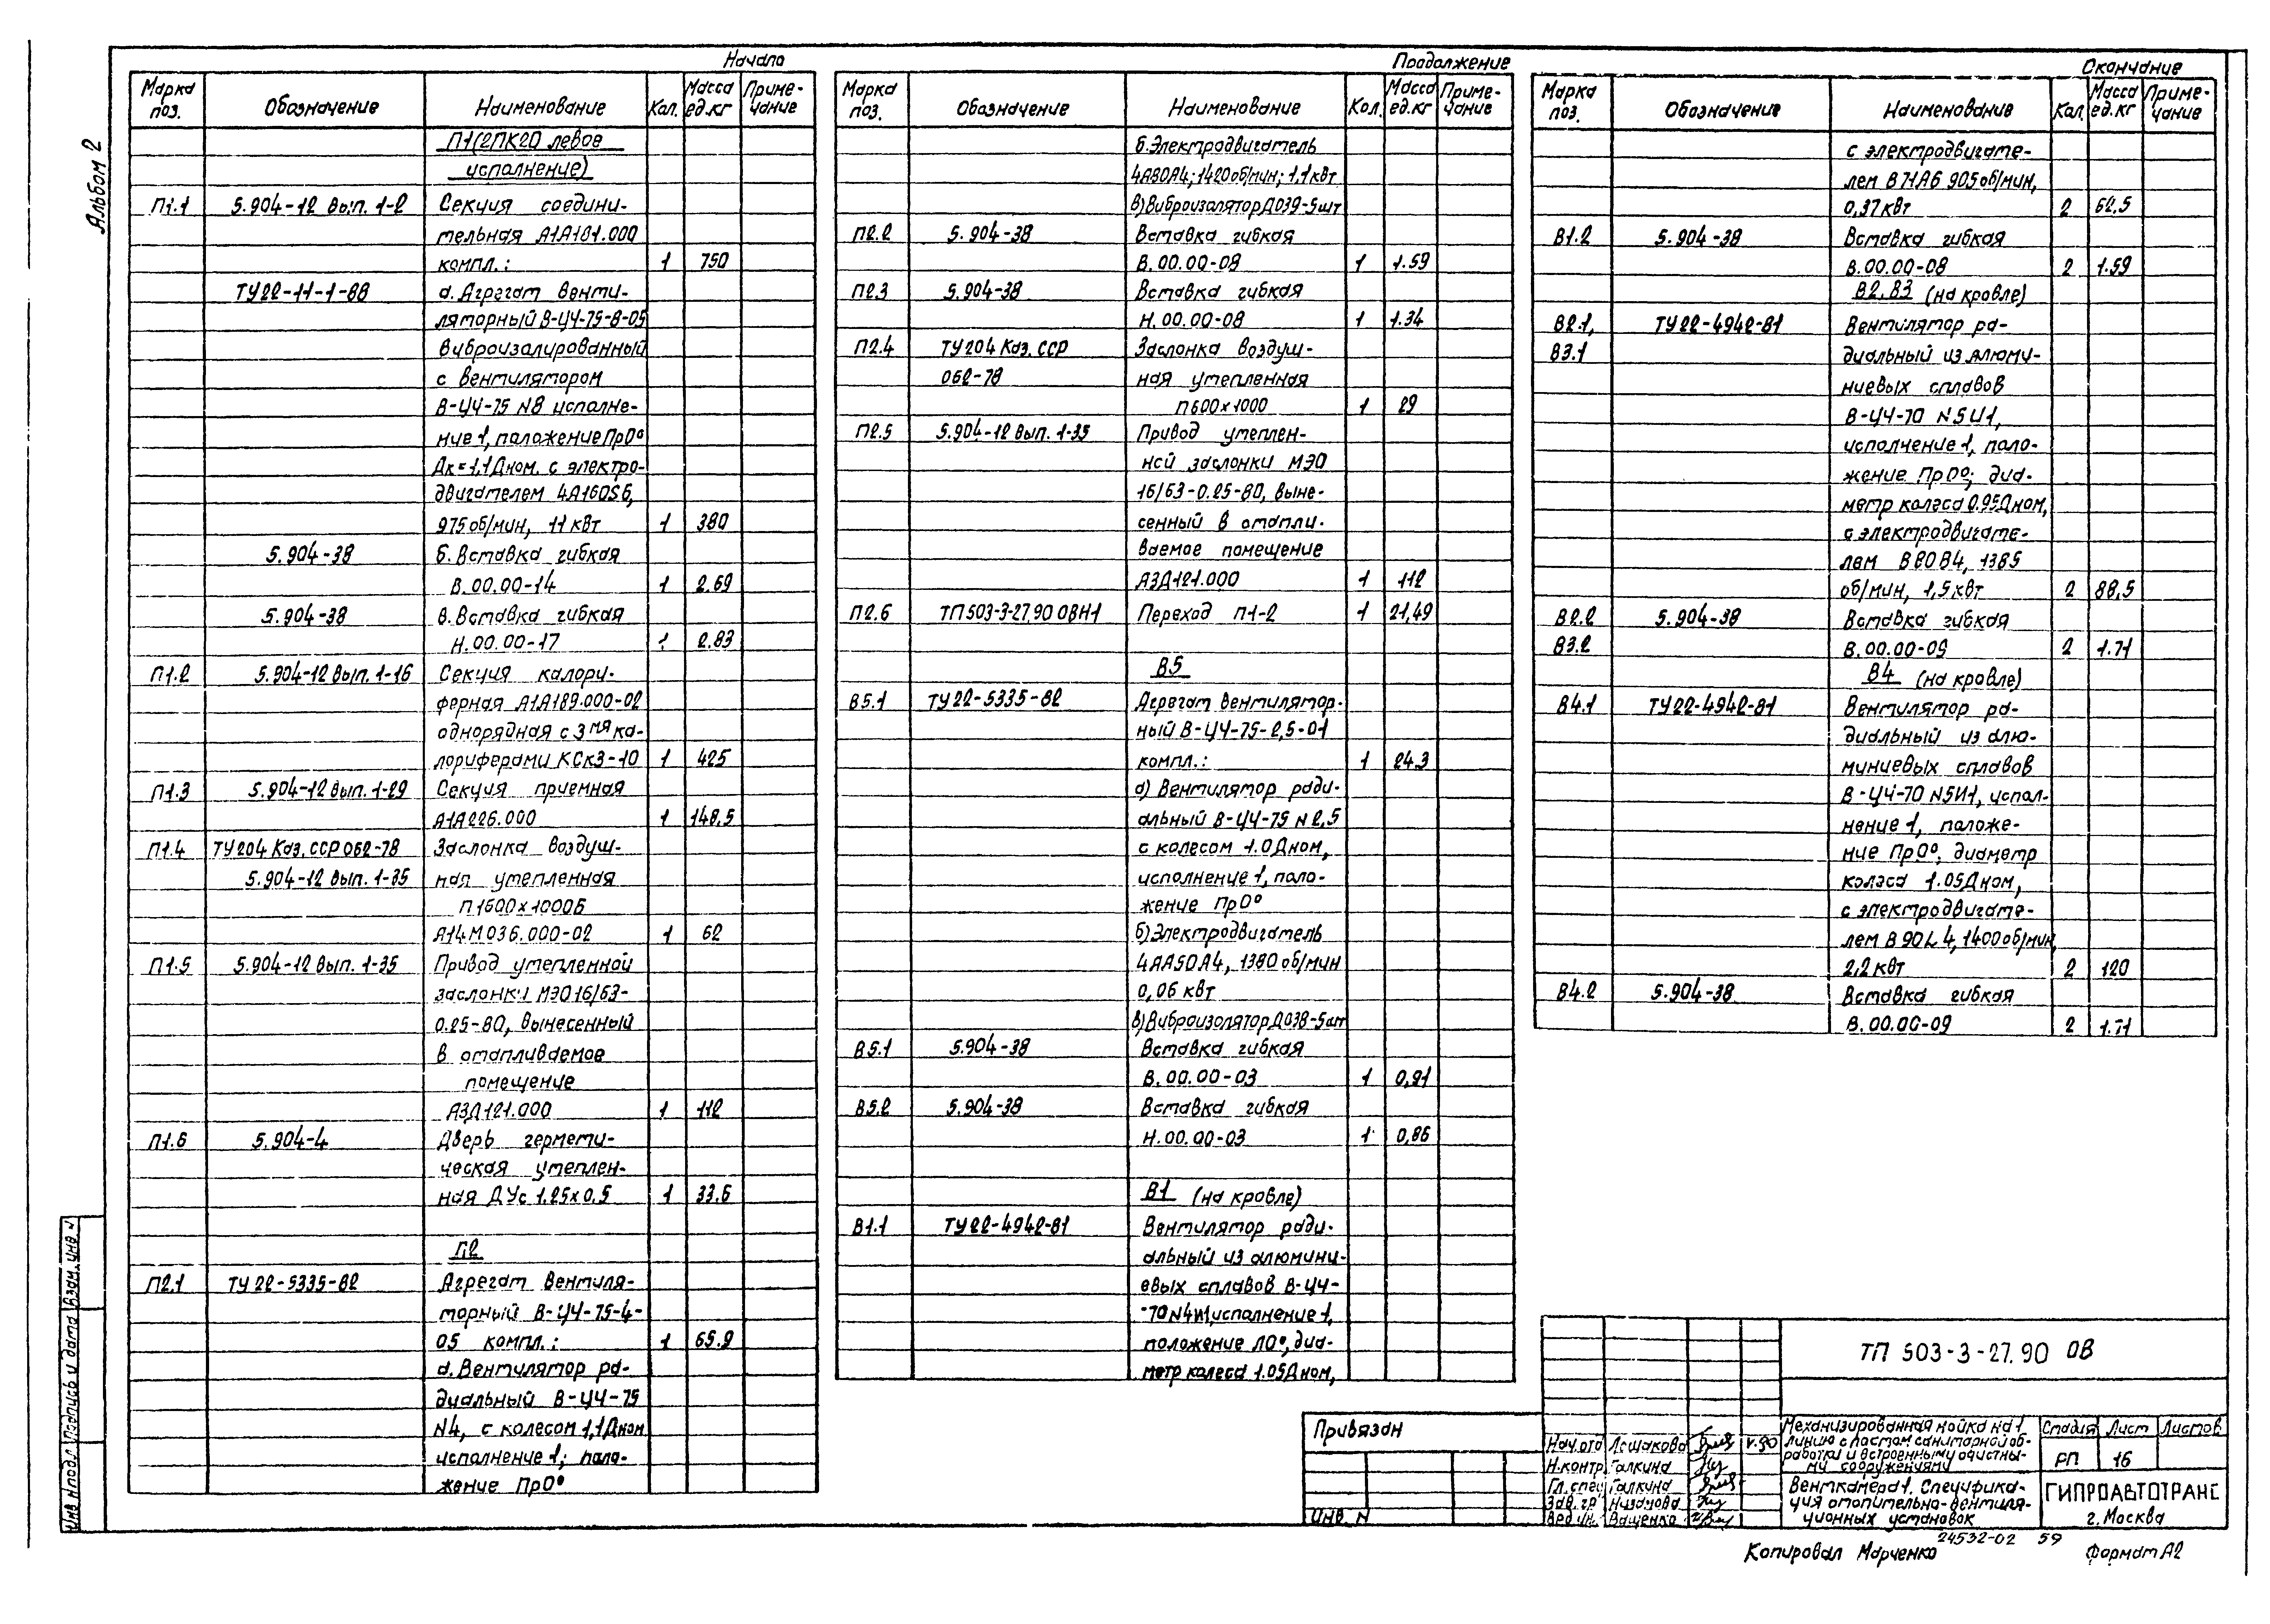 Альбом 2
Начало
Марка поз. Обозначение Наименование Кол. Масса ед.кг Приме-чание
П1(2ПК20 левое
исполнение)
П1.1 5.904-12 Вып. 1-2 Секция соедини-
тельная А1А181.000
компл.: 1 750
ТУ22-11-1-88 а. Агрегат венти-
ляторный В-Ц4-75-8-05
виброизолированный
с вентилятором
В-Ц4-75 N8 исполне-
ние 1, положение Пр0°
Дк=1,1Дном. с электро-
двигателем 4А160S6,
975 об/мин, 11 кВт 1 380
5.904-38 б. Вставка гибкая
В.00.00-14 1 2.69
5.904-38 в. Вставка гибкая
Н.00.00-17 1 2.83
П1.2 5.904-12 Вып. 1-16 Секция калори-
ферная А1А189.000-02
однорядная с 3мя ка-
лориферами КСк3-10 1 425
П1.3 5.904-12 Вып. 1-29 Секция приемная
А1А226.000 1 148,5
П1.4 ТУ204 Каз.ССР 062-78 Заслонка воздуш-
5.904-12 Вып. 1-35 ная утепленная
П1600х1000Б
А14М036.000-02 1 62
П1.5 5.904-12 Вып. 1-35 Привод утепленной
заслонки МЭО16/63-
0.25-80, вынесенный
в отапливаемое
помещение
А3Д121.000 1 112
П1.6 5.904-4 Дверь гермети-
ческая утеплен-
ная ДУс 1.25х0,5 1 33.6
П2
П2.1 ТУ22-5335-82 Агрегат вентиля-
торный В-Ц4-75-4-
05 компл.: 1 65.9
а. Вентилятор ра-
диальный В-Ц4-75
N4, с колесом 1,1Дном
исполнение 1; поло-
жение Пр0°
Продолжение
Марка поз. Обозначение Наименование Кол. Масса ед.кг Приме-чание
б. Электродвигатель
4А80А4; 1420 об/мин; 1,1 кВт
в) Виброизолятор Д039-5шт
П2.2 5.904-38 Вставка гибкая
В.00.00-08 1 1.59
П2.3 5.904-38 Вставка гибкая
Н.00.00-08 1 1.34
П2.4 ТУ204 Каз.ССР Заслонка воздуш-
062-78 ная утепленная
П600х1000 1 29
П2.5 5.904-12 Вып. 1-35 Привод утеплен-
ной заслонки МЭО
16/63-0.25-80, выне-
сенный в отапли-
ваемое помещение
А3Д121.000 1 112
П2.6 ТП503-3-27.90 ОВН1 Переход П1-2 1 21,49
В5
В5.1 ТУ22-5335-82 Агрегат вентилятор-
ный В-Ц4-75-2,5-01
компл.: 1 24.3
а) Вентилятор ради-
альный В-Ц4-75 N2,5
с колесом 1.0Дном,
исполнение 1, поло-
жение Пр0°
б) Электродвигатель
4АА50А4, 1380 об/мин
0,06 кВт
в) Виброизолятор Д038-5шт
В5.1 5.904-38 Вставка гибкая
В.00.00-03 1 0,91
В5.2 5.904-38 Вставка гибкая
Н.00.00-03 1 0,86
В1 (на кровле)
В1.1 ТУ22-4942-81 Вентилятор ради-
альный из алюмини-
евых сплавов В-Ц4-
-70N4И1, исполнение 1,
положение Л0°, диа-
метр колеса 1.05Дном,
Окончание
Марка поз. Обозначение Наименование Кол. Масса ед.кг Приме-чание
с электродвигате-
лем В71А6 905 об/мин,
0,37 кВт 2 62,5
В1.2 5.904-38 Вставка гибкая
В.00.00-08 2 1.59
В2, В3 (на кровле)
В2.1, ТУ22-4942-81 Вентилятор ра-
В3.1 диальный из алюми-
ниевых сплавов
В-Ц4-70 N5И1,
исполнение 1, поло-
жение Пр0°; диа-
метр колеса 0.95Дном,
с электродвигате-
лем В80В4, 1385
об/мин, 1,5 кВт 2 88,5
В2.2 5.904-38 Вставка гибкая
В3.2 В.00.00-09 2 1.71
В4 (на кровле)
В4.1 ТУ22-4942-81 Вентилятор ра-
диальный из алю-
миниевых сплавов
В-Ц4-70 N5И1, испол-
нение 1, положе-
ние Пр0°, диаметр
колеса 1.05Дном,
с электродвигате-
лем В90L4, 1400 об/мин,
2,2 кВт 2 120
В4.2 5.904-38 Вставка гибкая
В.00.00-09 2 1.71
ТП 503-3-27.90 ОВ
Привязан
Инв. N
Нач.отд Лошакова V.90
Н.контр. Галкина
Гл.спец Галкина
Зав.гр. Низамова
Вед.ин. Ващенко
Механизированная мойка на 1
линию с постом санитарной об-
работки и встроенными очистны-
ми сооружениями
Стадия Лист Листов
РП 16
Венткамера 1. Специфика-
ция отопительно-вентиля-
ционных установок
ГИПРОАВТОТРАНС
г. Москва
24532-02 59
Копировал Марченко Формат А2
Инв. N подл. Подпись и дата Взам. инв. N